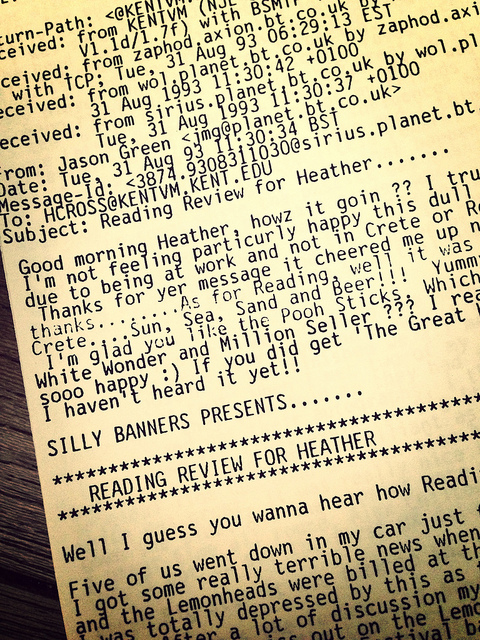 <@KENTVM
ceived: from KENTVM (NJE
V1.1d/1.7f) with BSMTP
ceived: from zaphod.axion.bt.co.uk by
with TCP; Tue, 31 Aug 93 06:29:13 EST
eceived: from wol.planet.bt.co.uk by zaphod.axi
31 Aug 1993 11:30:42 +0100
eceived: from sirius.planet.bt.co.uk by wol.pl
Tue, 31 Aug 1993 11:30:37 +0100
rom: Jason Green <jmg@planet.bt.co.uk>
Date: Tue, 31 Aug 93 11:30:34 BST
Message-Id: <3874.9308311030@sirius.planet.bt.
To: HCROSS@KENTVM.KENT.EDU
Subject: Reading Review for Heather.......
Good morning Heather, howz it goin ?? I tru
I'm not feeling particurly happy this dull
due to being at work and not in Crete or R
Thanks for yer message it cheered me up n
thanks........As for Reading, well it was
Crete...Sun, Sea, Sand and Beer!!! Yumm
I'm glad you like the Pooh Sticks, Which
White Wonder and Million Seller ??? I rea
sooo happy :) If you did get 'The Great
I haven't heard it yet!!
SILLY BANNERS PRESENTS.......
****************************************
READING REVIEW FOR HEATHER
****************************************
Well I guess you wanna hear how Readi
Five of us went down in my car just
I got some really terrible news when
and the Lemonheads were billed at th
was totally depressed by this as
After a lot of discussion my
out on the Lemo